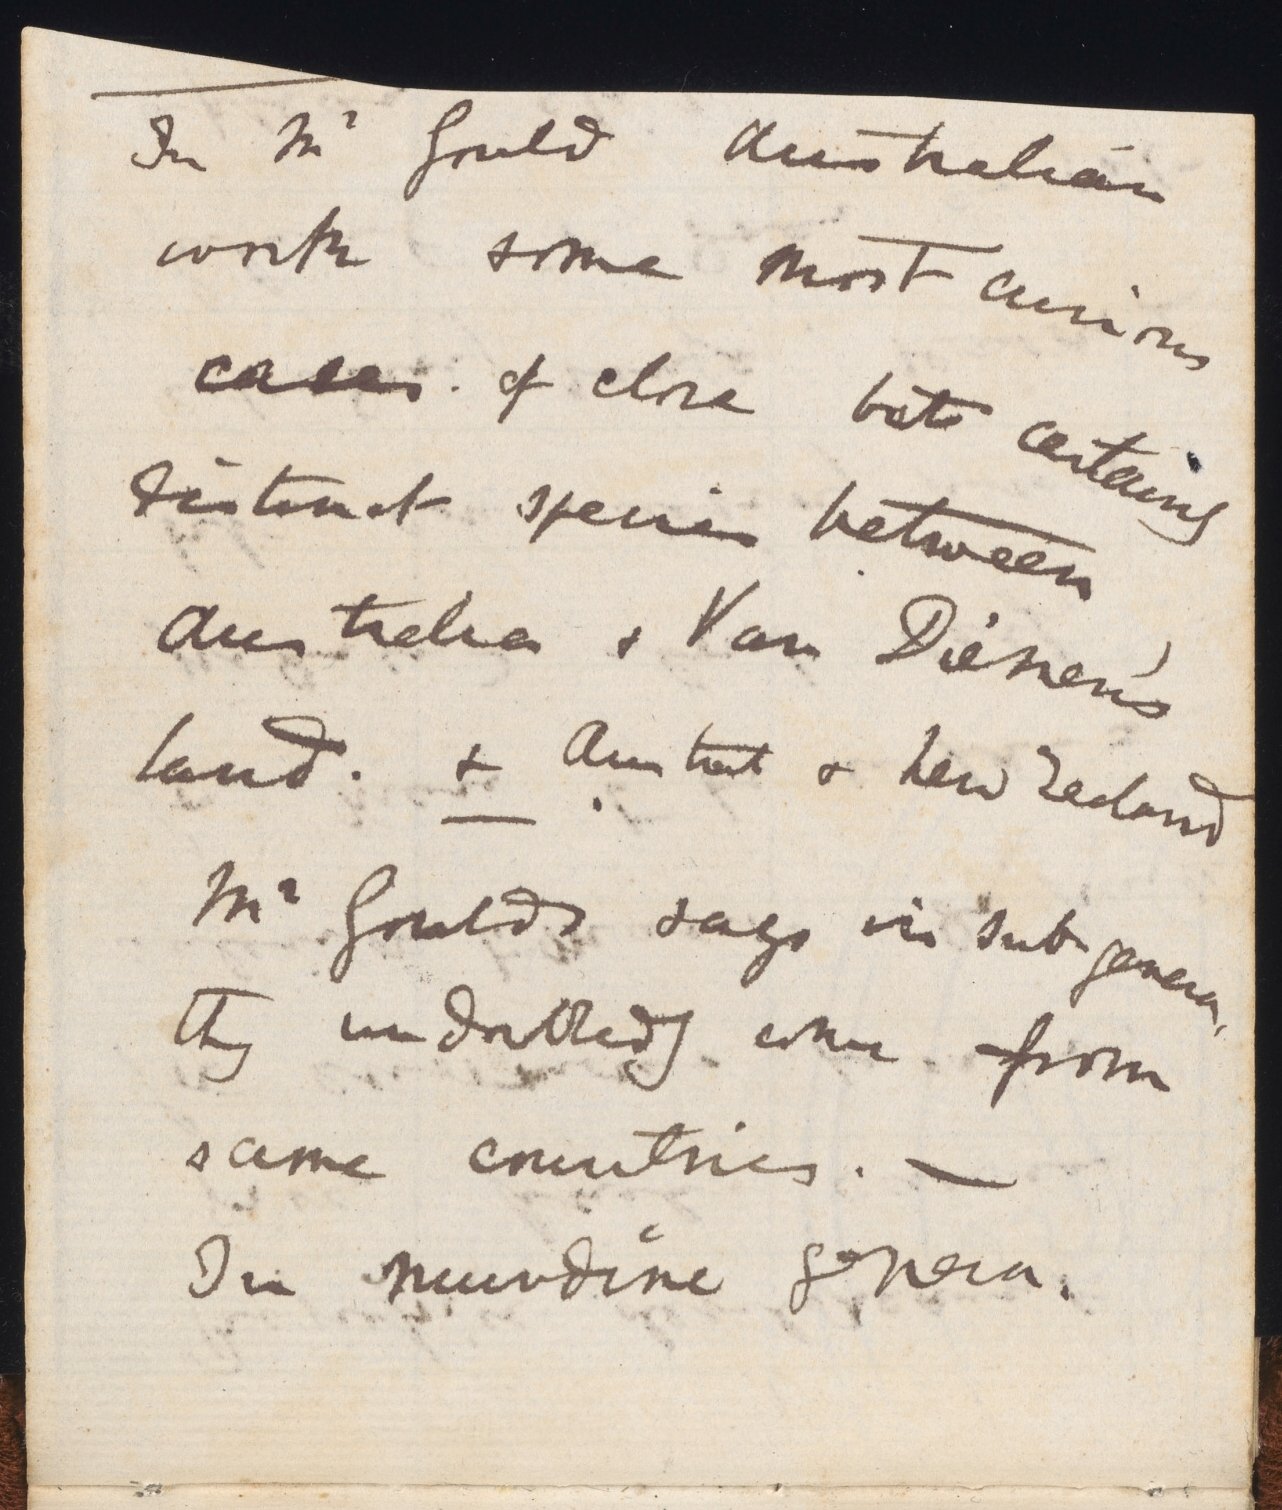 In Mr Gould Australian
work some most curious
cases. of close but certainly
distinct species between
Australia & Van Diemen's
land. & Austral & New Zealand
Mr Goulds says in sub genera,
they undoubtedly come from
same countries. —
In mundine genera.